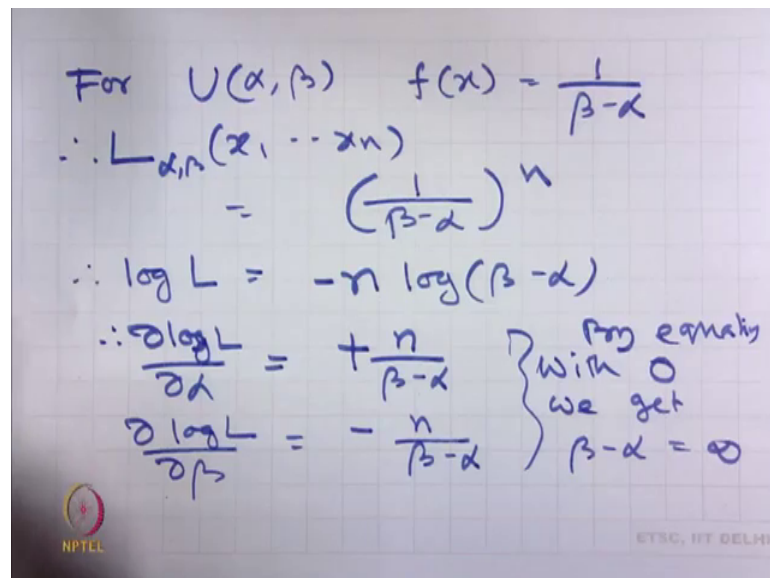 For U(α,β) f(x) = 1/(β-α)
∴ L α,β (x₁ ·· xn)
= (1/(β-α))^n
∴ log L = -n log(β-α)
∴ ∂logL/∂α = + n/(β-α)
∂ logL/∂β = - n/(β-α)
} By equating
with 0
we get
β-α = ∞
NPTEL
ETSC, IIT DELHI